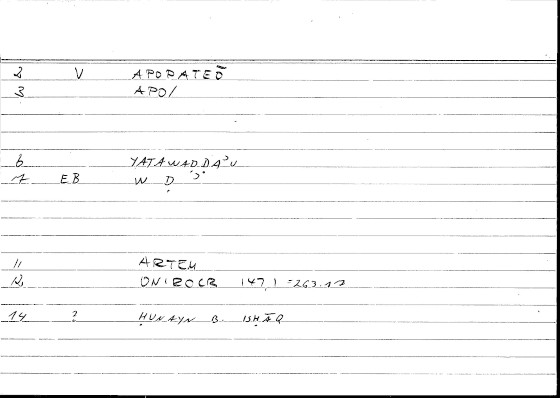 2 V APOPATEŌ
3 APO/
6 YATAWAḌḌAʾU
7 EB W Ḍ ʾ
11 ARTEM
12 ONIROCR 147,1 =
14 ? ḤUNAYN B. ISḤĀQ